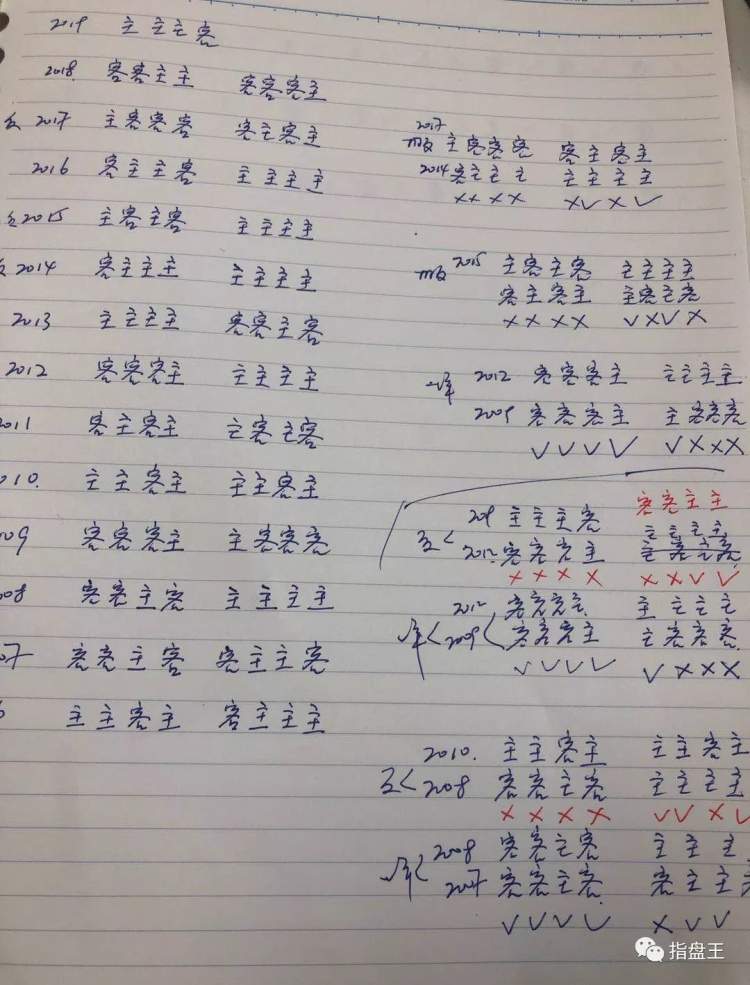 2019 主主主客
2018. 客客主主 客客客主
2017 主客客客 客主客主
2016 客主主客 主主主主
2015 主客主客 主主主主
2014 客主主主 主主主主
2013 主主主主 客客主客
2012 客客客主 主主主主
011 客主客主 主客主客
010. 主主客主 主主客主
009 客客客主 主客客客
008 客客主客 主主主主
07 客客主客 客主主客
主主客主 客主主主
2017 主客客客 客主客主
2014 客主主主 主主主主
×××× ×✓×✓
2015 主客主客 主主主主
客主客主 主客主客
×××× ✓×✓×
2012 客客客主 主主主主
2009 客客客主 主客客客
✓✓✓✓ ✓×××
客客主主
2019 主主主客 主主主主
2012. 客客客主
×××× ××✓✓
2012 客客客主 主主主主
2009 客客客主 主客客客
✓✓✓✓ ✓×××
2010. 主主客主 主主客主
2008 客客主客 主主主主
×××× ✓✓×✓
2008 客客主客 主主主
2007 客客主客 客主主客
✓✓✓✓ ×✓✓
指盘王